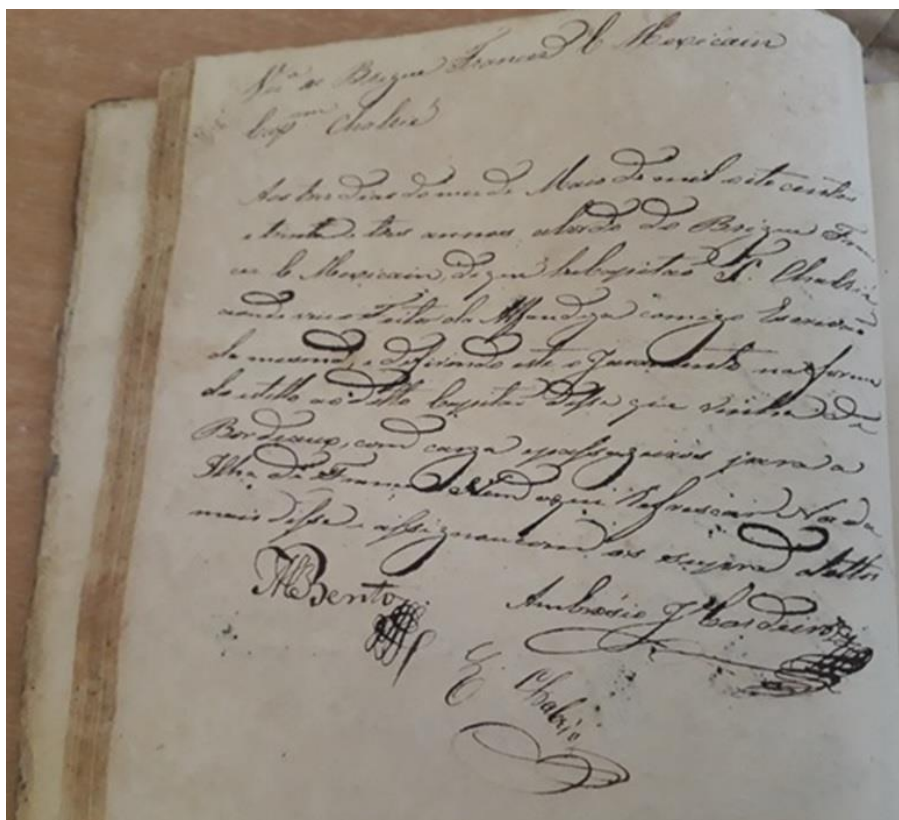 Brigue Frances Le Mexicain
Cap.m Chabrié
Aos tres dias do mes de Maio de mil oito centos
e trinta e tres annos abordo do Brigue Fran
ces Le Mexicain, de que he Capitão Chabrié
aonde veio Feitor da Alfandega comigo Escrivão
da mesma, e deferindo este o Juramento na forma
do estillo ao ditto Capitão disse que vinha de
Bordeaux, com carga e passageiros para a
Ilha de França e vem aqui Refrescar Nada
mais disse e assignou com os supra dittos
Bento
Ambrósio J Cordeiro
Chabrié